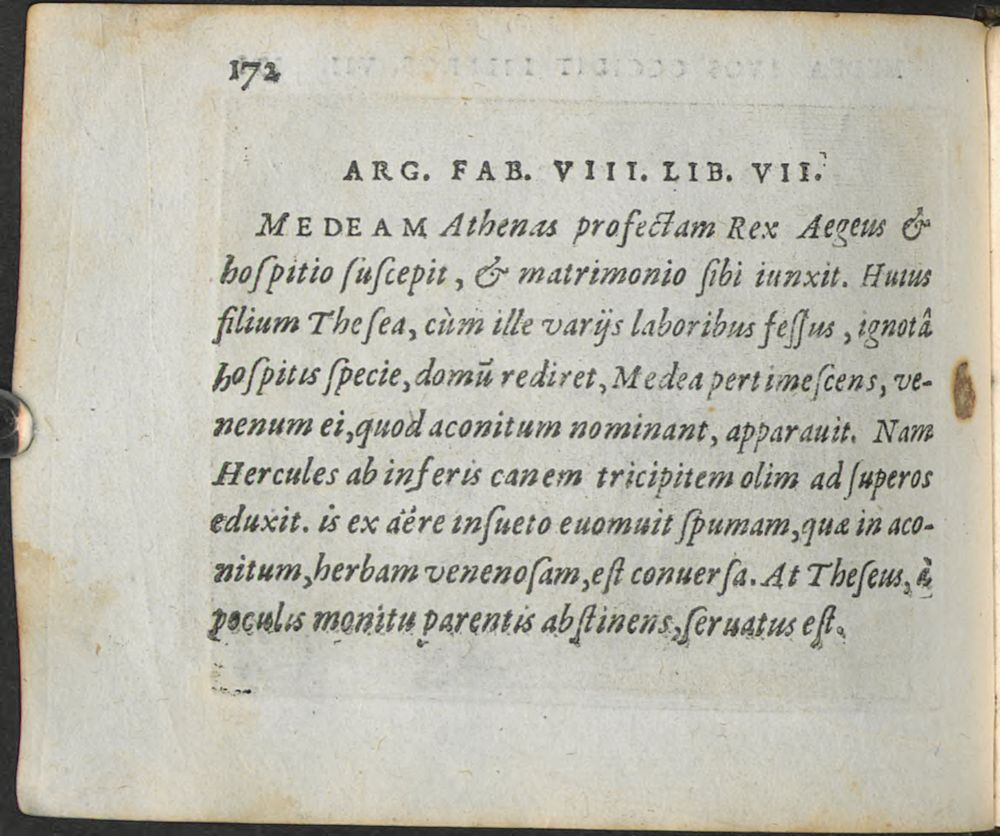 172
ARG. FAB. VIII. LIB. VII.
MEDEAM Athenas profectam Rex Aegeus &
hoſpitio ſuſcepit, & matrimonio ſibi iunxit. Huius
filium Theſea, cùm ille varijs laboribus feſſus, ignotâ
hoſpitis ſpecie, domũ rediret, Medea pertimeſcens, ve-
nenum ei, quod aconitum nominant, apparauit. Nam
Hercules ab inferis canem tricipitem olim ad ſuperos
eduxit. is ex äëre inſueto euomuit ſpumam, quæ in aco-
nitum, herbam venenoſam, eſt conuerſa. At Theſeus, à
poculis monitu parentis abſtinens, ſeruatus eſt.